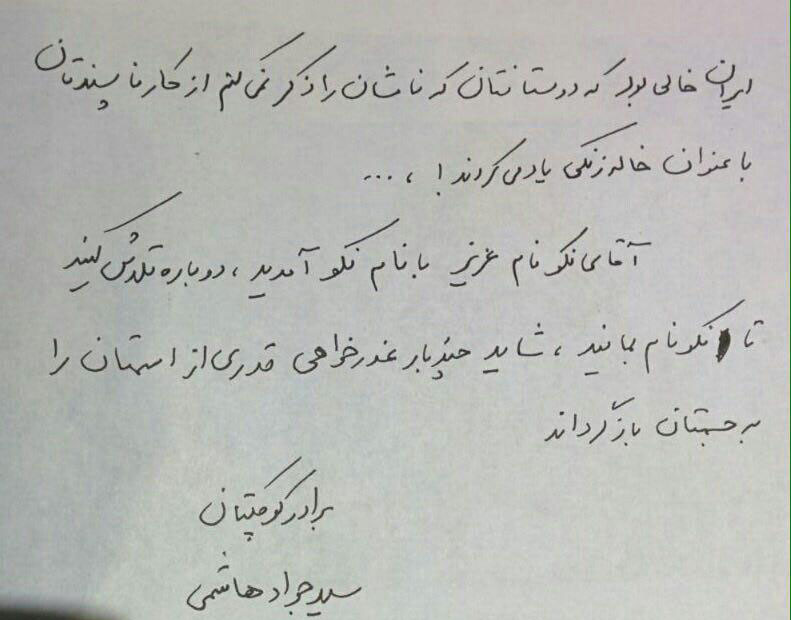 ایران خالی بود که دوستانتان که نامشان را ذکر نمی کنم از کار ناپسندتان
با عنوان خاله زنکی یاد می کردند! ، ...
آقای نکو نام عزیز با نام نکو آمدید ، دوباره تلاش کنید
تا نکونام بمانید ، شاید چندبار عذرخواهی قدری از را
به جیبتان بازگرداند
برادر کوچکتان
سید جواد هاشمی